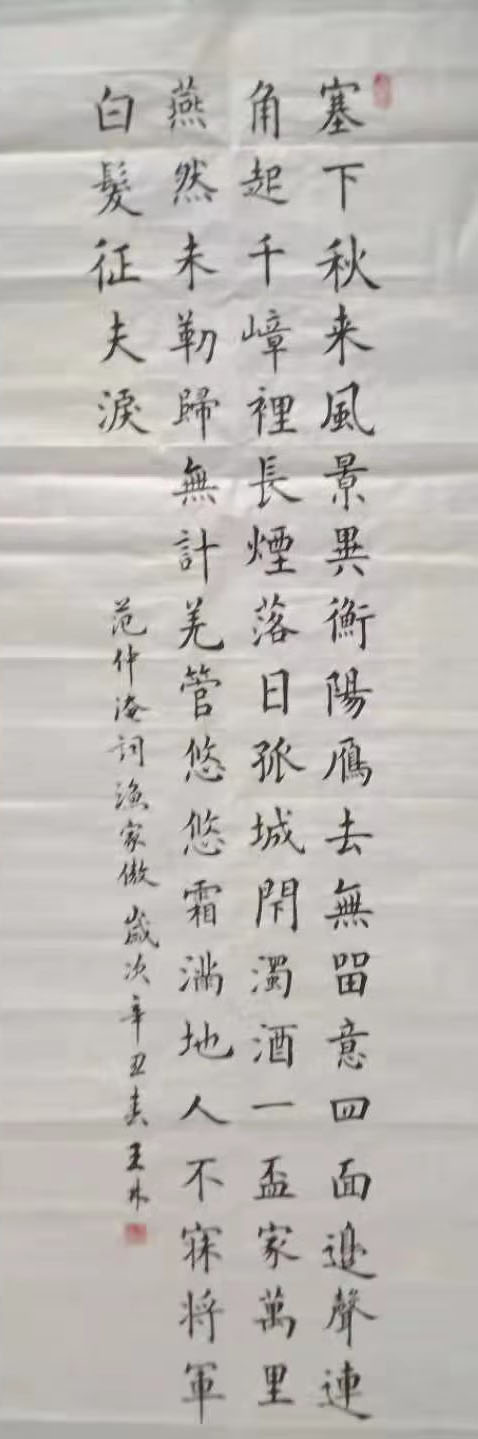 塞下秋来風景異衡陽鴈去無畱意四面邉聲連
角起千嶂裡長煙落日孤城閇濁酒一盃家萬里
燕然未勒歸無計羌管悠悠霜滿地人不寐将軍
白髮征夫淚
范仲淹詞漁家傲歲次辛丑春王